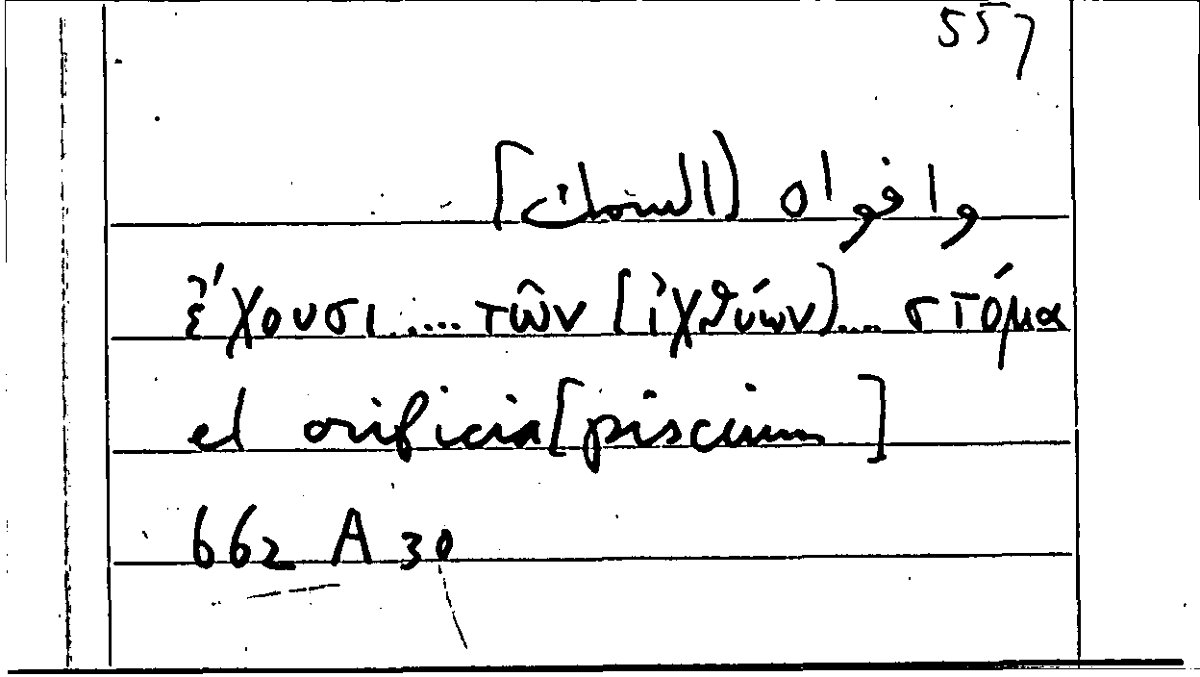 557
وافواه (السمك]
ἔχουσι..... τῶν [ἰχθύων).... στόμα
et orificia [piscium]
662 A 30